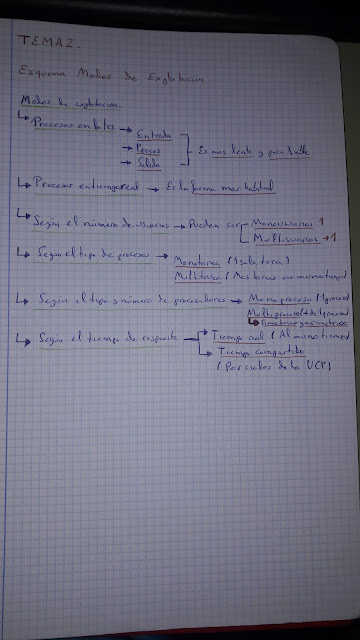 TEMA2.
Esquema Modos de Explotacion
Modos de explotacion.
Procesos en lotes → Entrada
→ Proceso
→ Salida
Es mas lento y
Procesos en tiempo real → Es la forma mas habitual
Según el número de usuarios → Pueden ser Monousuarios 1
Multiusuarios +1
Segun el tipo de procesos → Monotarea (1 sola tarea)
Multitarea (Mas tareas a un mismo tiempo)
Según el tipo y número de procesadores → Monoproceso (1 proceso)
Multiproceso (+ de 1 proceso)
Simetricos y asimetricos
Según el tiempo de respuesta → Tiempo real (Al mismo tiempo)
→ Tiempo compartido
(Por ciclos de la UCP)